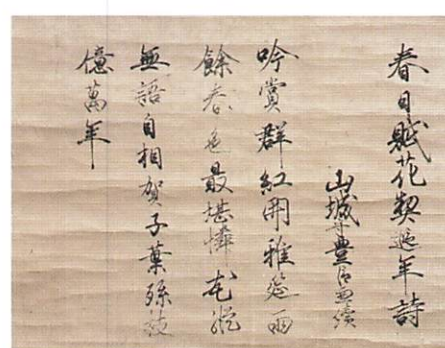 春日賦花契遐年詩
山城守豊臣兼續
吟賞群紅開雅筵雨
餘春色最堪憐花縱
無語自相賀子葉孫枝
億萬年